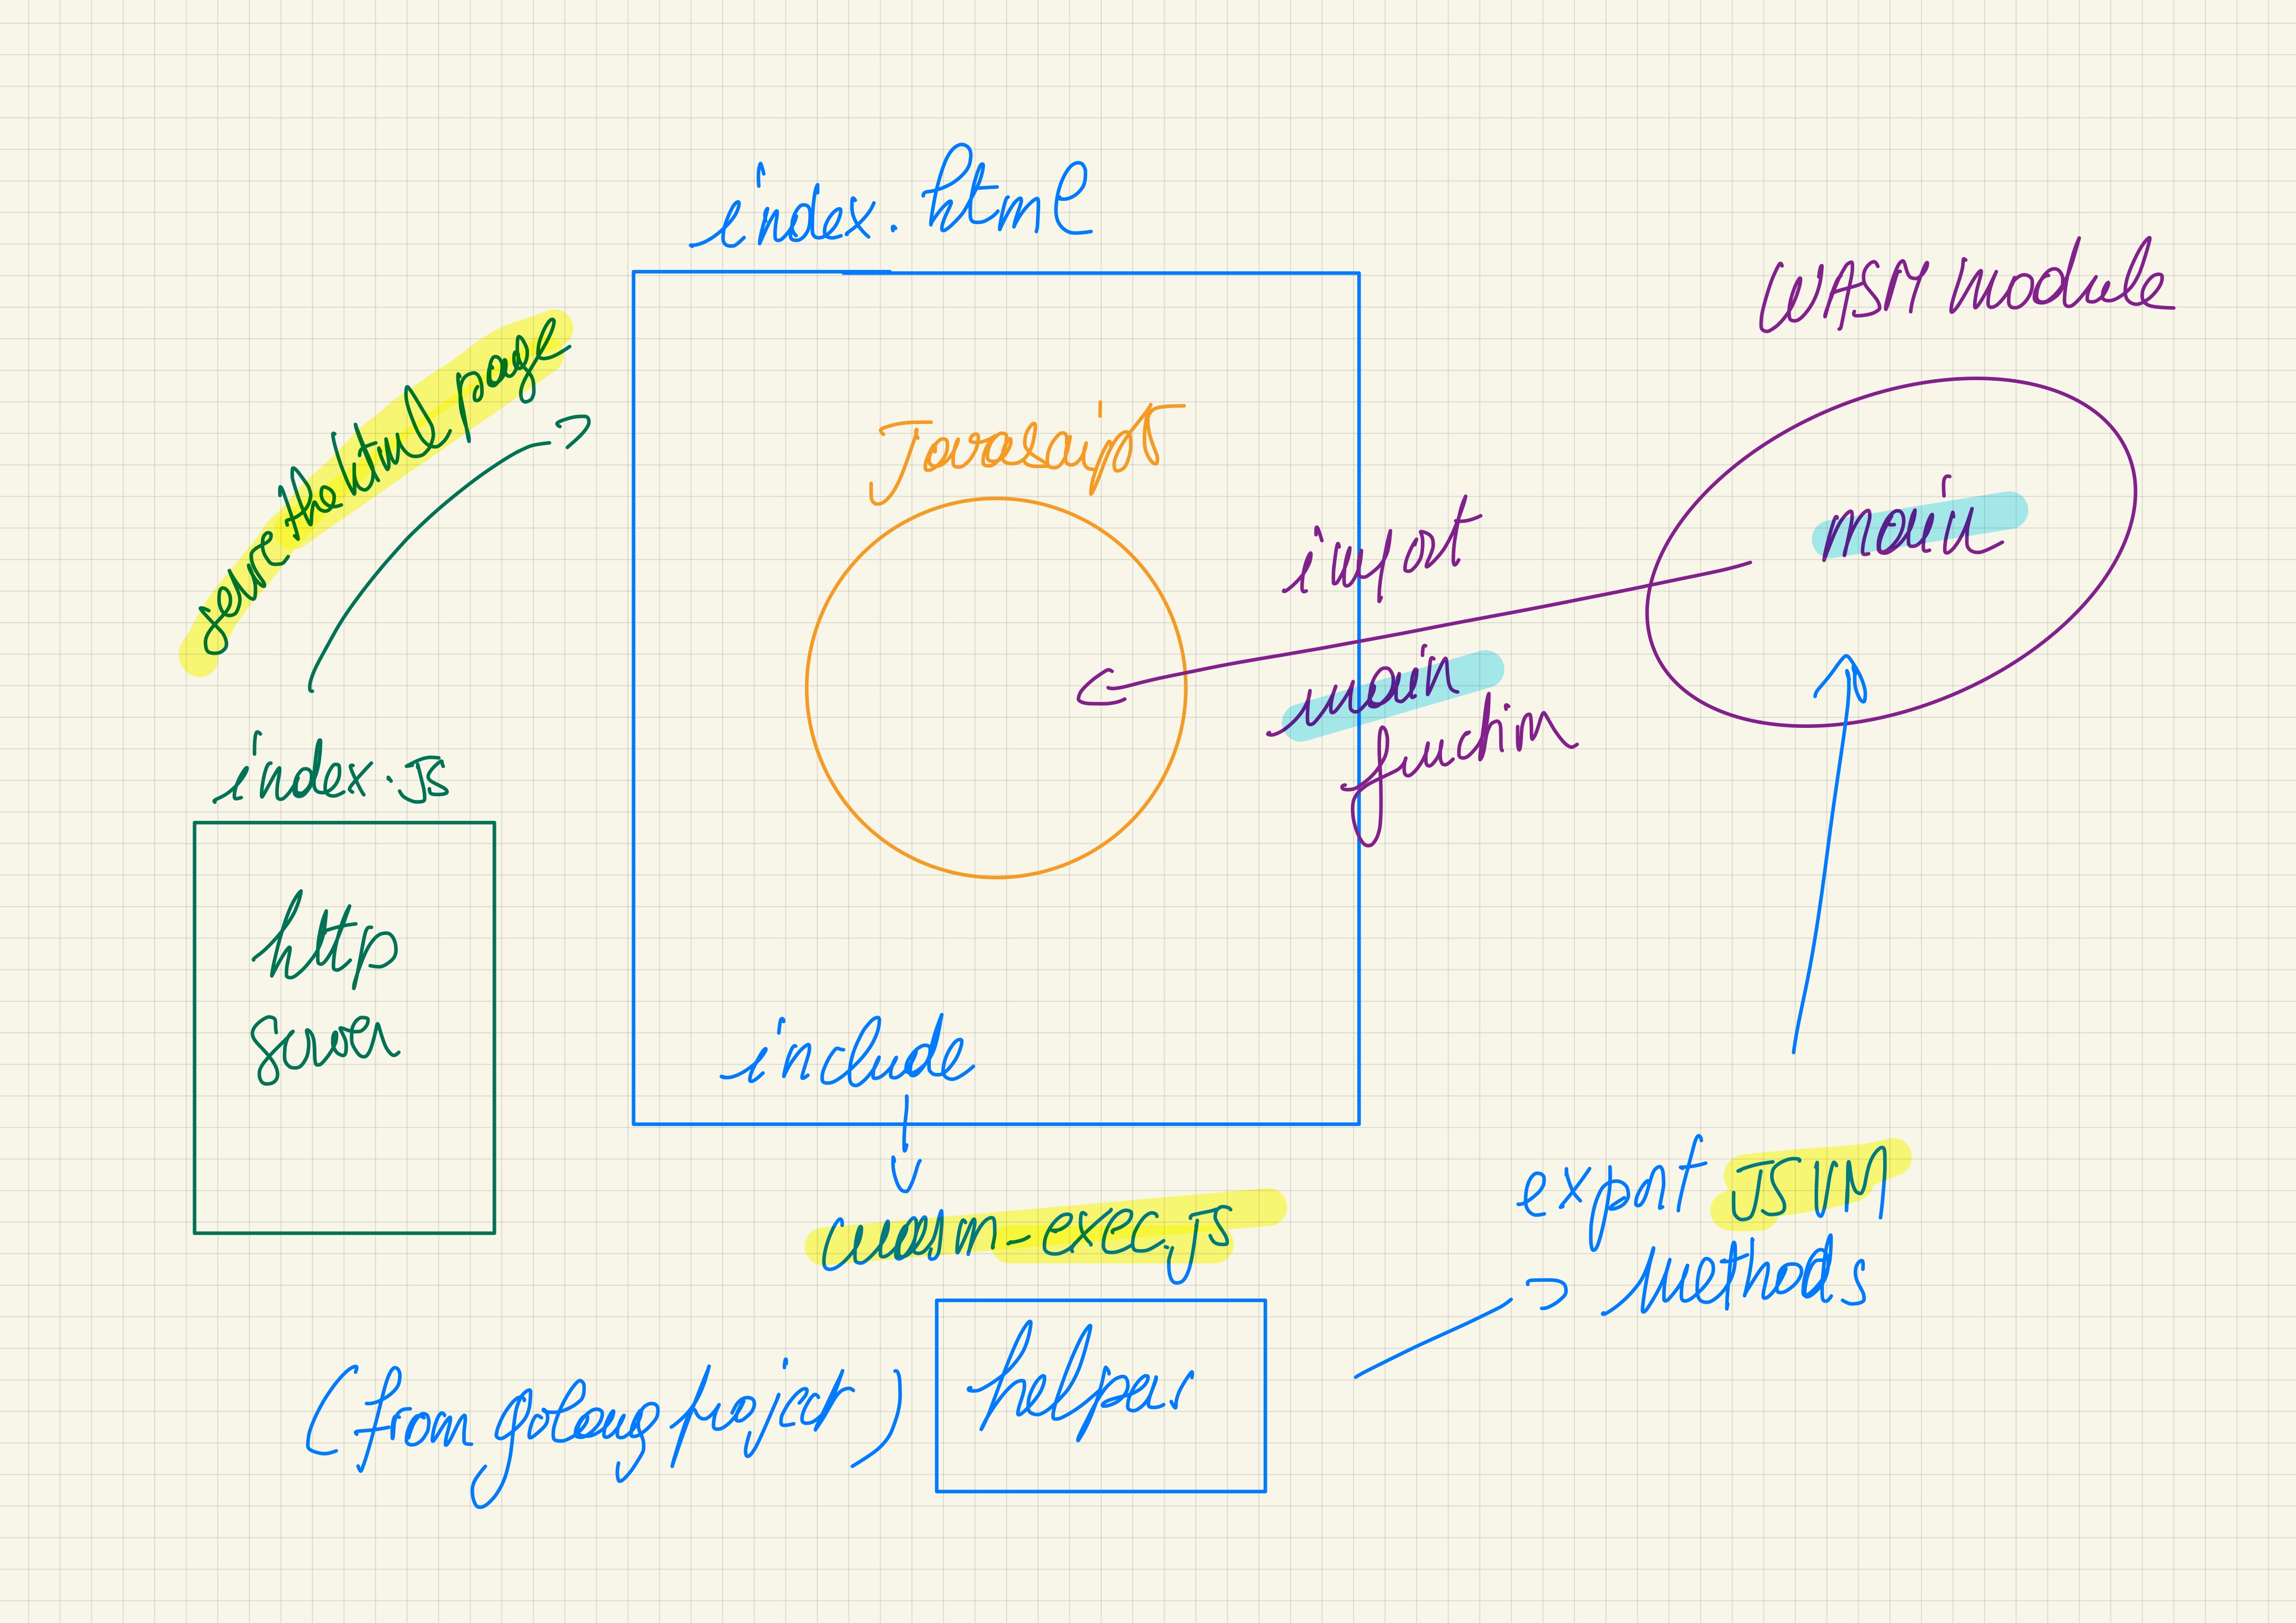 index.html
WASM module
serve the html page
Javascript
main
import
main
function
index.js
http
server
include
wasm_exec.js
export JS VM
methods
(from golang project)
helper